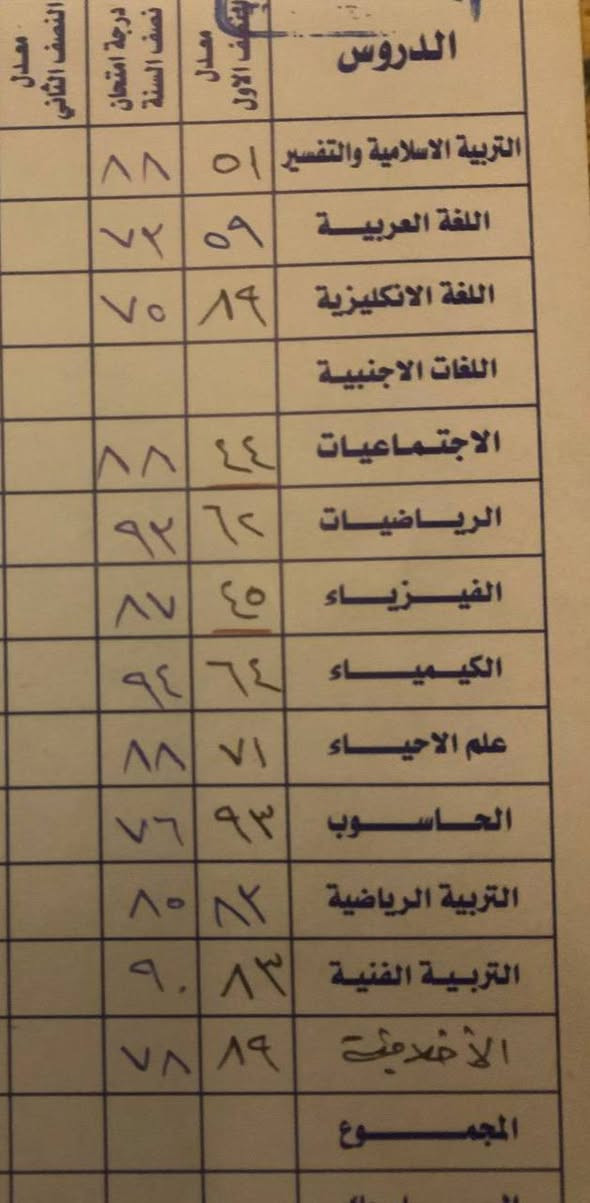 الدروس معدل النصف الاول درجة امتحان نصف السنة معدل النصف الثاني
التربية الاسلامية والتفسير ٥١ ٨٨
اللغة العربية ٥٩ ٧٣
اللغة الانكليزية ٨٩ ٧٥
اللغات الاجنبية
الاجتماعيات ٤٤ ٨٨
الرياضيات ٦٢ ٩٣
الفيزياء ٤٥ ٨٧
الكيمياء ٦٤ ٩٤
علم الاحياء ٧١ ٨٨
الحاسوب ٩٣ ٧٦
التربية الرياضية ٨٣ ٨٥
التربية الفنية ٨٣ ٩٠
الأخلاقية ٨٩ ٧٨
المجموع